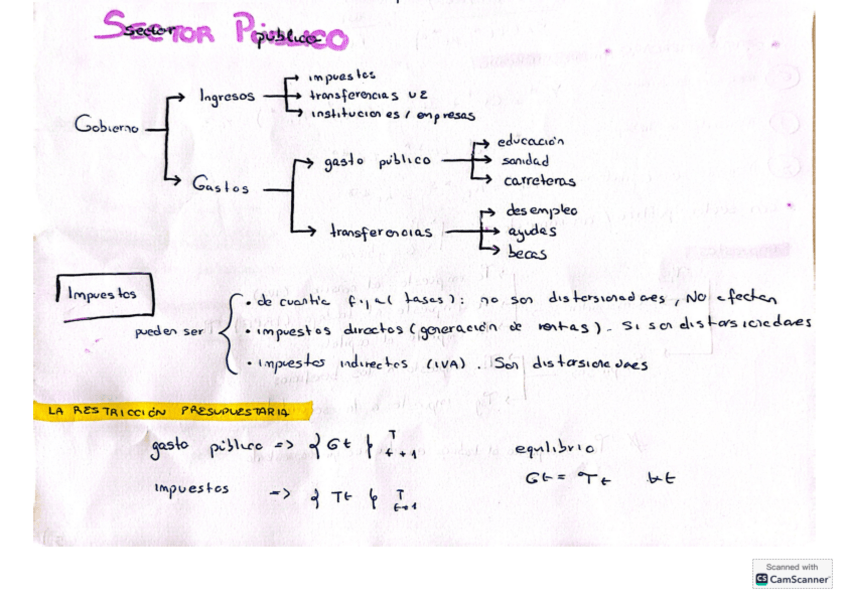 Sector Público
Gobierno
Ingresos
impuestos
transferencias UE
instituciones / empresas
Gastos
gasto público
educación
sanidad
carreteras
transferencias
desempleo
ayudas
becas
Impuestos
pueden ser
• de cuantía fija (tasas): no son distorsionadores, NO afectan
• impuestos directos (generación de rentas). Si son distorsionadores
• impuestos indirectos (IVA). Son distorsionadores
LA RESTRICCIÓN PRESUPUESTARIA
gasto público => {Gt}ᵀt=1
equilibrio
impuestos => {Tt}ᵀt=1
Gt = Tt ∀t
Scanned with
CS CamScanner